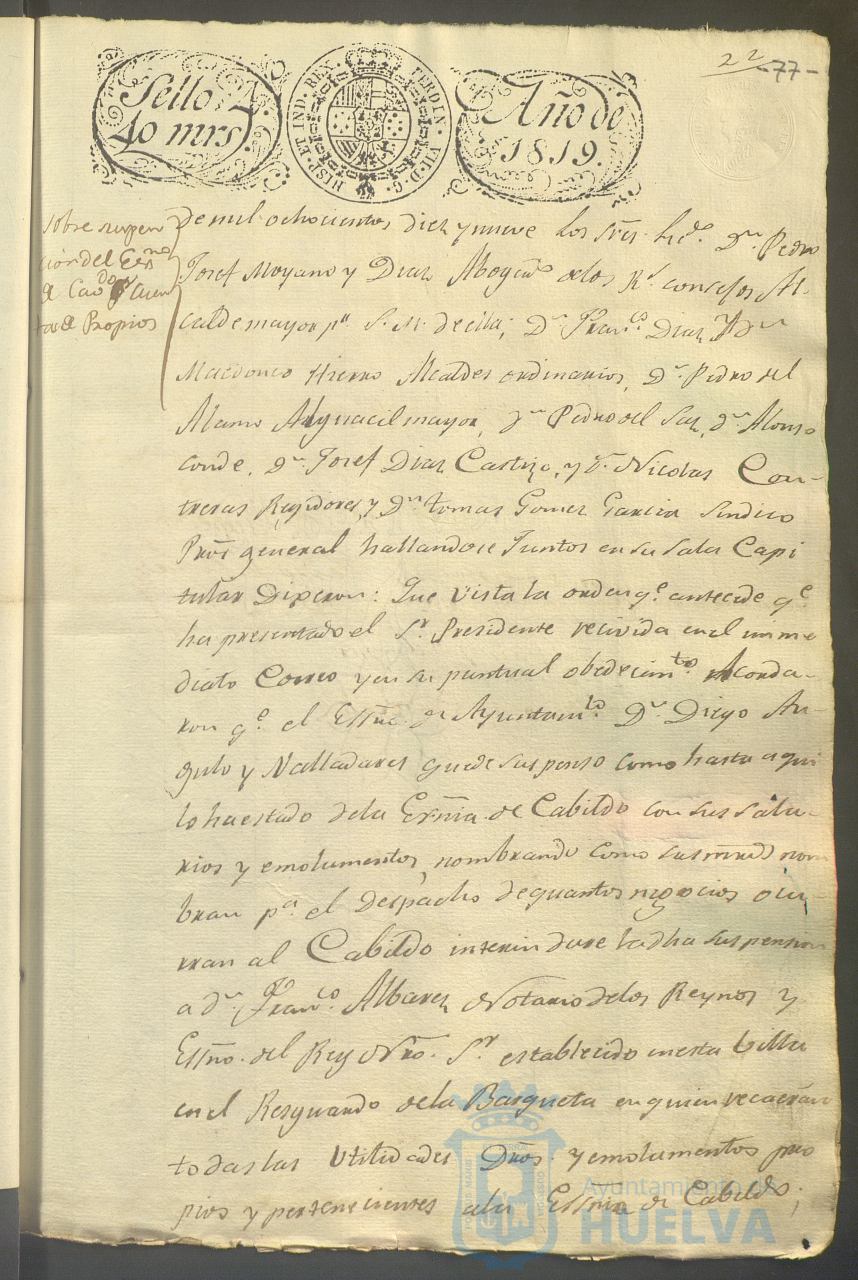 22
-77-
Sello 4.º
40 mrs
HISP. ET IND. REX. FERDIN. VII. D. G.
Año de
1819.
sobre suspen
ción del Essno
de Cavdo y Cuen
tas de Propios
de mil ochocientos diez y nueve los Sres. Licdo. Dn. Pedro
Josef Moyano y Diaz Abogdo de los Rs. consejos Al-
calde mayor pr. S. M. de ella; Dn. Franco. Diaz y Dn
Macdonco Hierro Alcaldes ordinarios, Dn. Pedro del
Alamo Alguacil mayor, Dn Pedro del Saz, Dn. Alonso
Conde, Dn. Josef Diaz Castizo, y Dn. Nicolas Con-
treras Regidores, y Dn. Tomas Gomez Garcia Sindico
Pror. general hallandose Juntos en su Sala Capi
tular Dixeron: Que vista la orden qe. antecede qe.
ha presentado el Sr. Presidente recivida en el inme
diato Correo y en su puntual obedecimto. Acorda-
ron qe. el Essno. de Ayuntamto. Dn. Diego An-
gulo y Valladares quede suspenso como hasta aqui
lo ha estado de la Esnia. de Cabildo con sus sala-
rios y emolumentos, nombrando como sus mrds nom
bran pa. el Despacho de quantos negocios ocu-
rran al Cabildo interin dure la dha suspension
a dn. Franco. Albarez Notario de los Reynos y
Essno. del Rey Nro. Sr. establecido en esta Villa
en el Resguardo de la Basqueta en quien recaeran
todas las Utilidades Dros. y emolumentos pro
pios y pertenecientes a la Essnia de Cabildo;
Ayuntamiento de
HUELVA